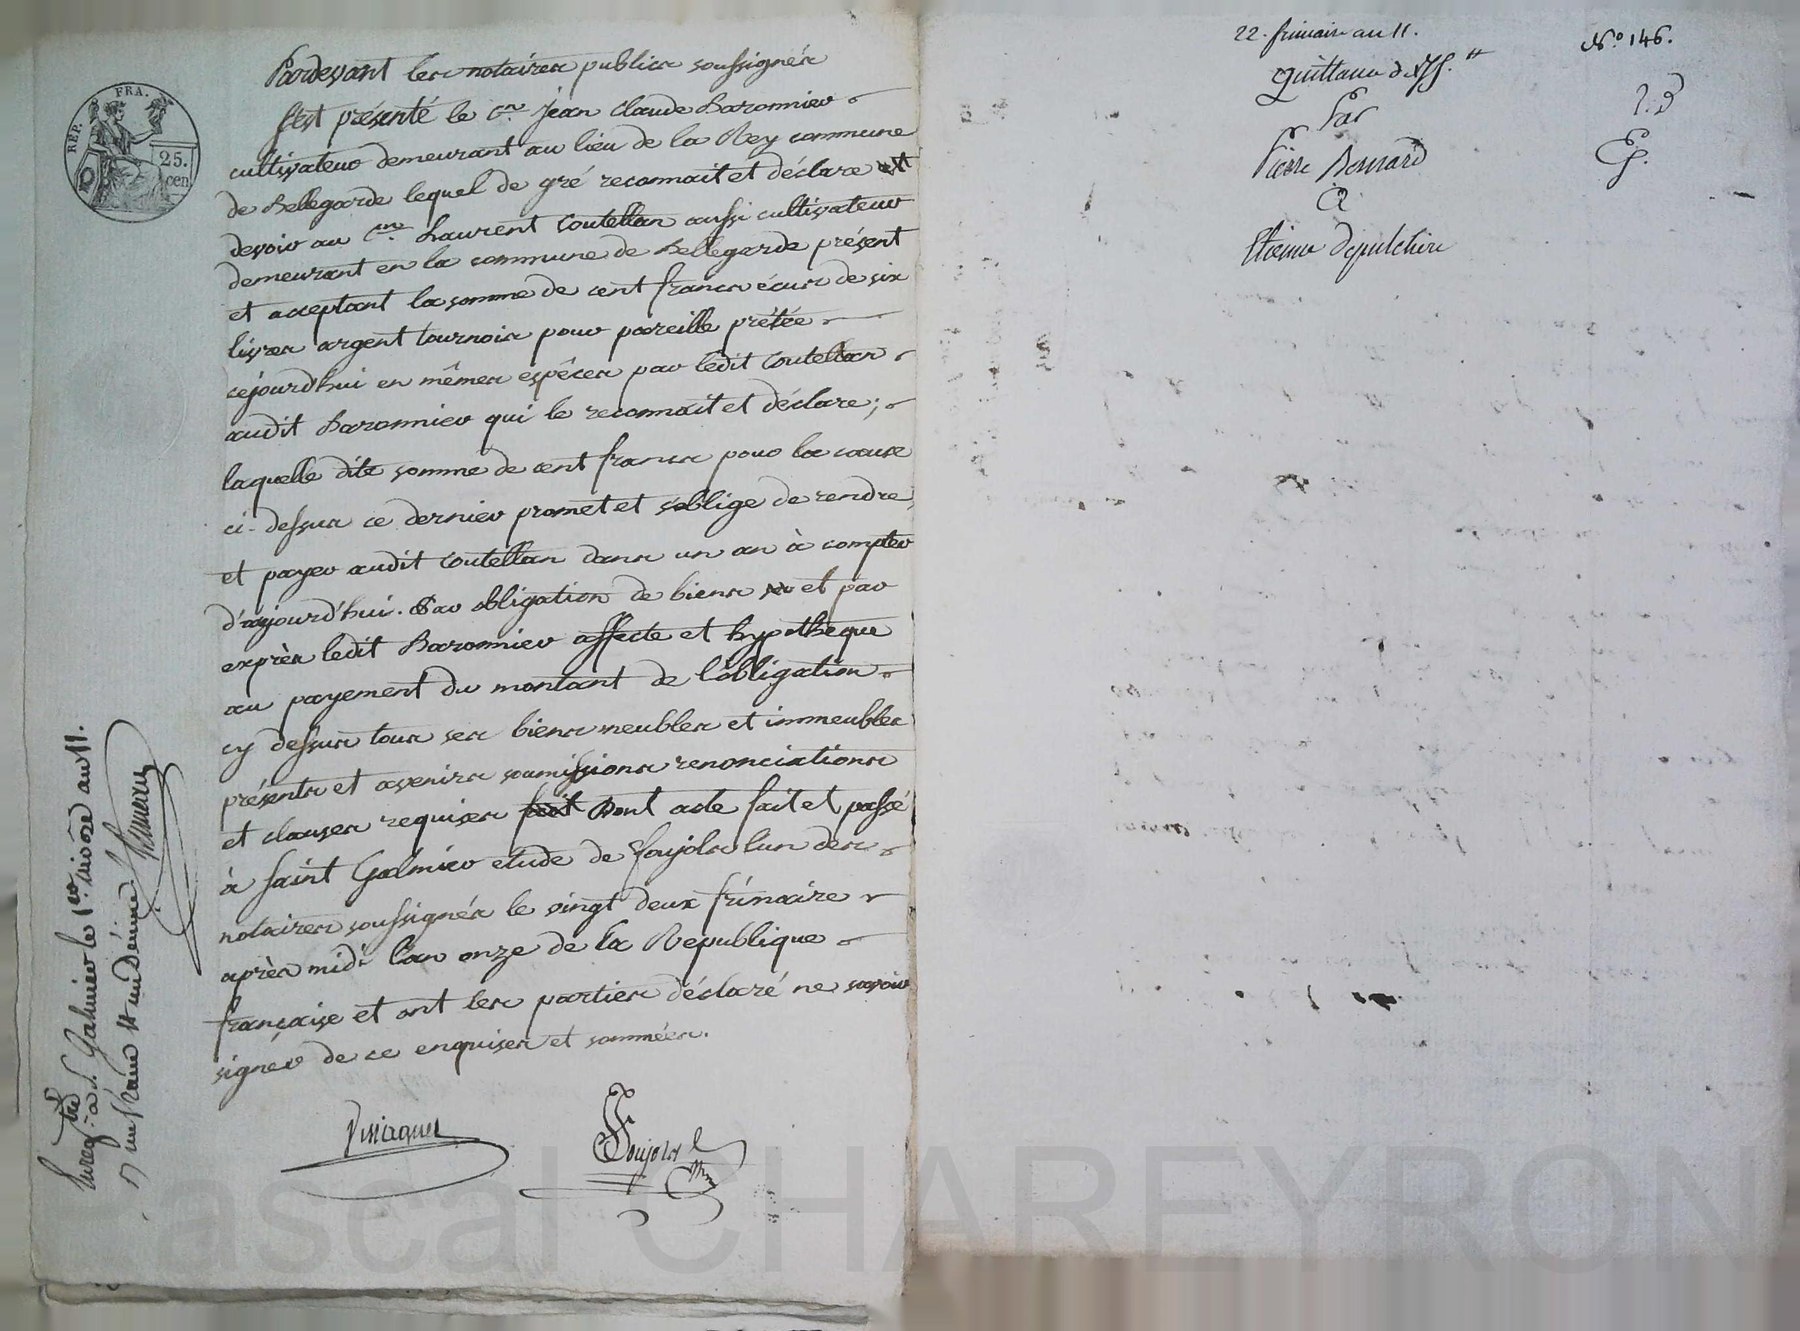 REP. FRA.
25. cen.
Pardevant les notaires publics soussignés
s'est présenté le c.en Jean Claude Baronnier
cultivateur demeurant au lieu de la Rey commune
de Bellegarde lequel de gré reconnait et déclare
devoir au c.en Laurent Coutellan aussi cultivateur
demeurant en la commune de Bellegarde présent
et acceptant la somme de cent francs écus de six
livres argent tournois pour pareille prétée
cejourd'hui en mêmes espêces par ledit Coutellan
audit Baronnier qui le reconnait et déclare;
laquelle dite somme de cent francs pour la cause
ci-dessus ce dernier promet et s'oblige de rendre
et payer audit Coutellan dans un an à compter
d'aujourd'hui. Par obligation de biens et par
exprès ledit Baronnier affecte et hypothèque
au payement du montant de l'obligation
cy dessus tous ses biens meubles et immeubles
présents et avenirs soumissions renonciations
et clauses requises Dont acte fait et passé
à Saint Galmier etude de foujols l'un des
notaires soussignés le vingt deux frimaire
après midi l'an onze de la Republique
française et ont les parties déclaré ne savoir
signer de ce enquises et sommées.
Foujols
Enreg.tré à S. Galmier le 1er nivôse an 11.
un franc et un décime
22. frimaire an 11.
N.o 146.
Quittance de
Par
Pierre Bonnard
A
Etienne Depulchire
Pascal CHAREYRON